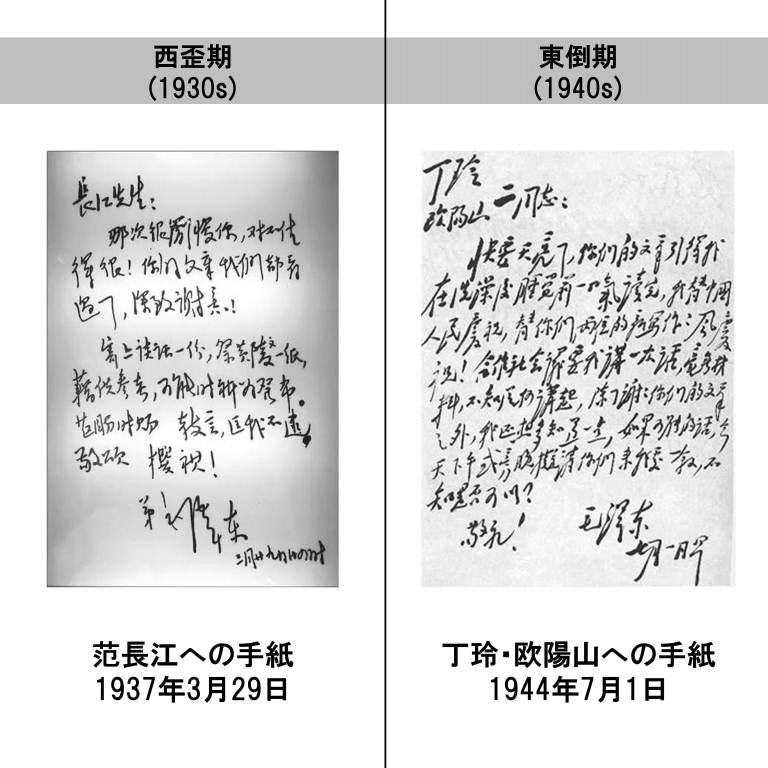 西歪期
(1930s)
長江先生:
那次很簡慢你,对不住
得很!你的文章我们都看
过了,深致謝意!
寄上談話一份,祭黄陵文一纸,
藉供参考,可能时祈为發布。
甚盼时赐 教言,匡我不逮。
敬颂 撰祺!
弟毛泽东
三月廿九日
范長江への手紙
1937年3月29日
東倒期
(1940s)
丁玲
欧阳山 二同志:
快要天亮了,你们的文章引得我
在洗澡后睡觉前一口氣讀完,我替中國
人民慶祝,替你们两位的新写作作风慶
祝!合作社会議要我講一次話,毫無材
料,不知從何講起。除了謝謝你们的文章
之外,我还想多知道一点,如果可能的话,今
天下午或傍晚擬请你们來我處一叙,不
知是否可以?
敬礼!
毛泽东
七月一日早
丁玲・欧陽山への手紙
1944年7月1日